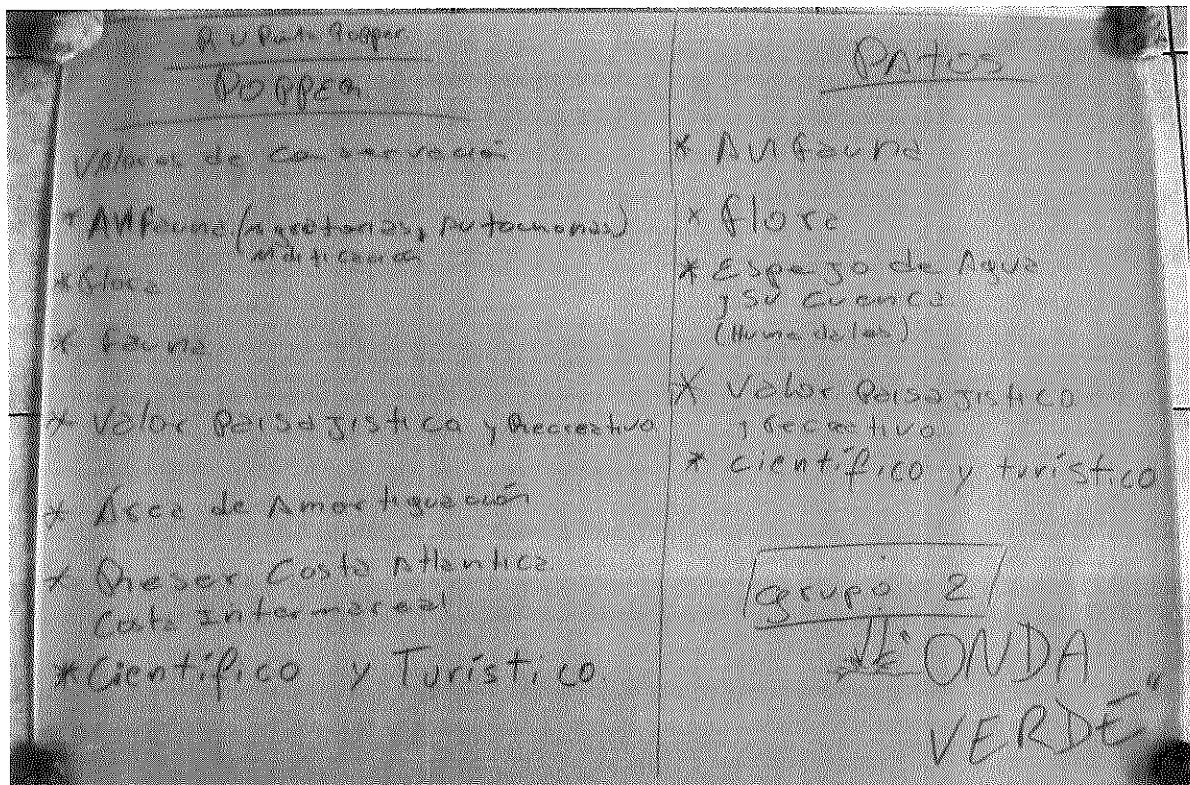 R U Punta Popper
POPPER
Valores de Conservación
* AVIfauna (Migratorias, Autoctonas)
* flora
* fauna
* Valor Paisajistico y Recreativo
* Área de Amortiguación
* Preser Costa Atlantica
Costa Intermareal
* Científico y Turístico
PAtos
* AVIfauna
* flora
* Espejo de Agua
y su cuenca
(Humedales)
* Valor Paisajistico
y Recreativo
* científico y turístico
grupo 2
ONDA
VERDE"